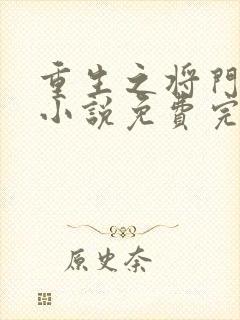 重生之将門
小说免費完
原史奈